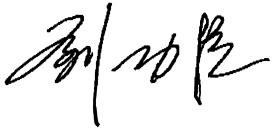 刘功臣